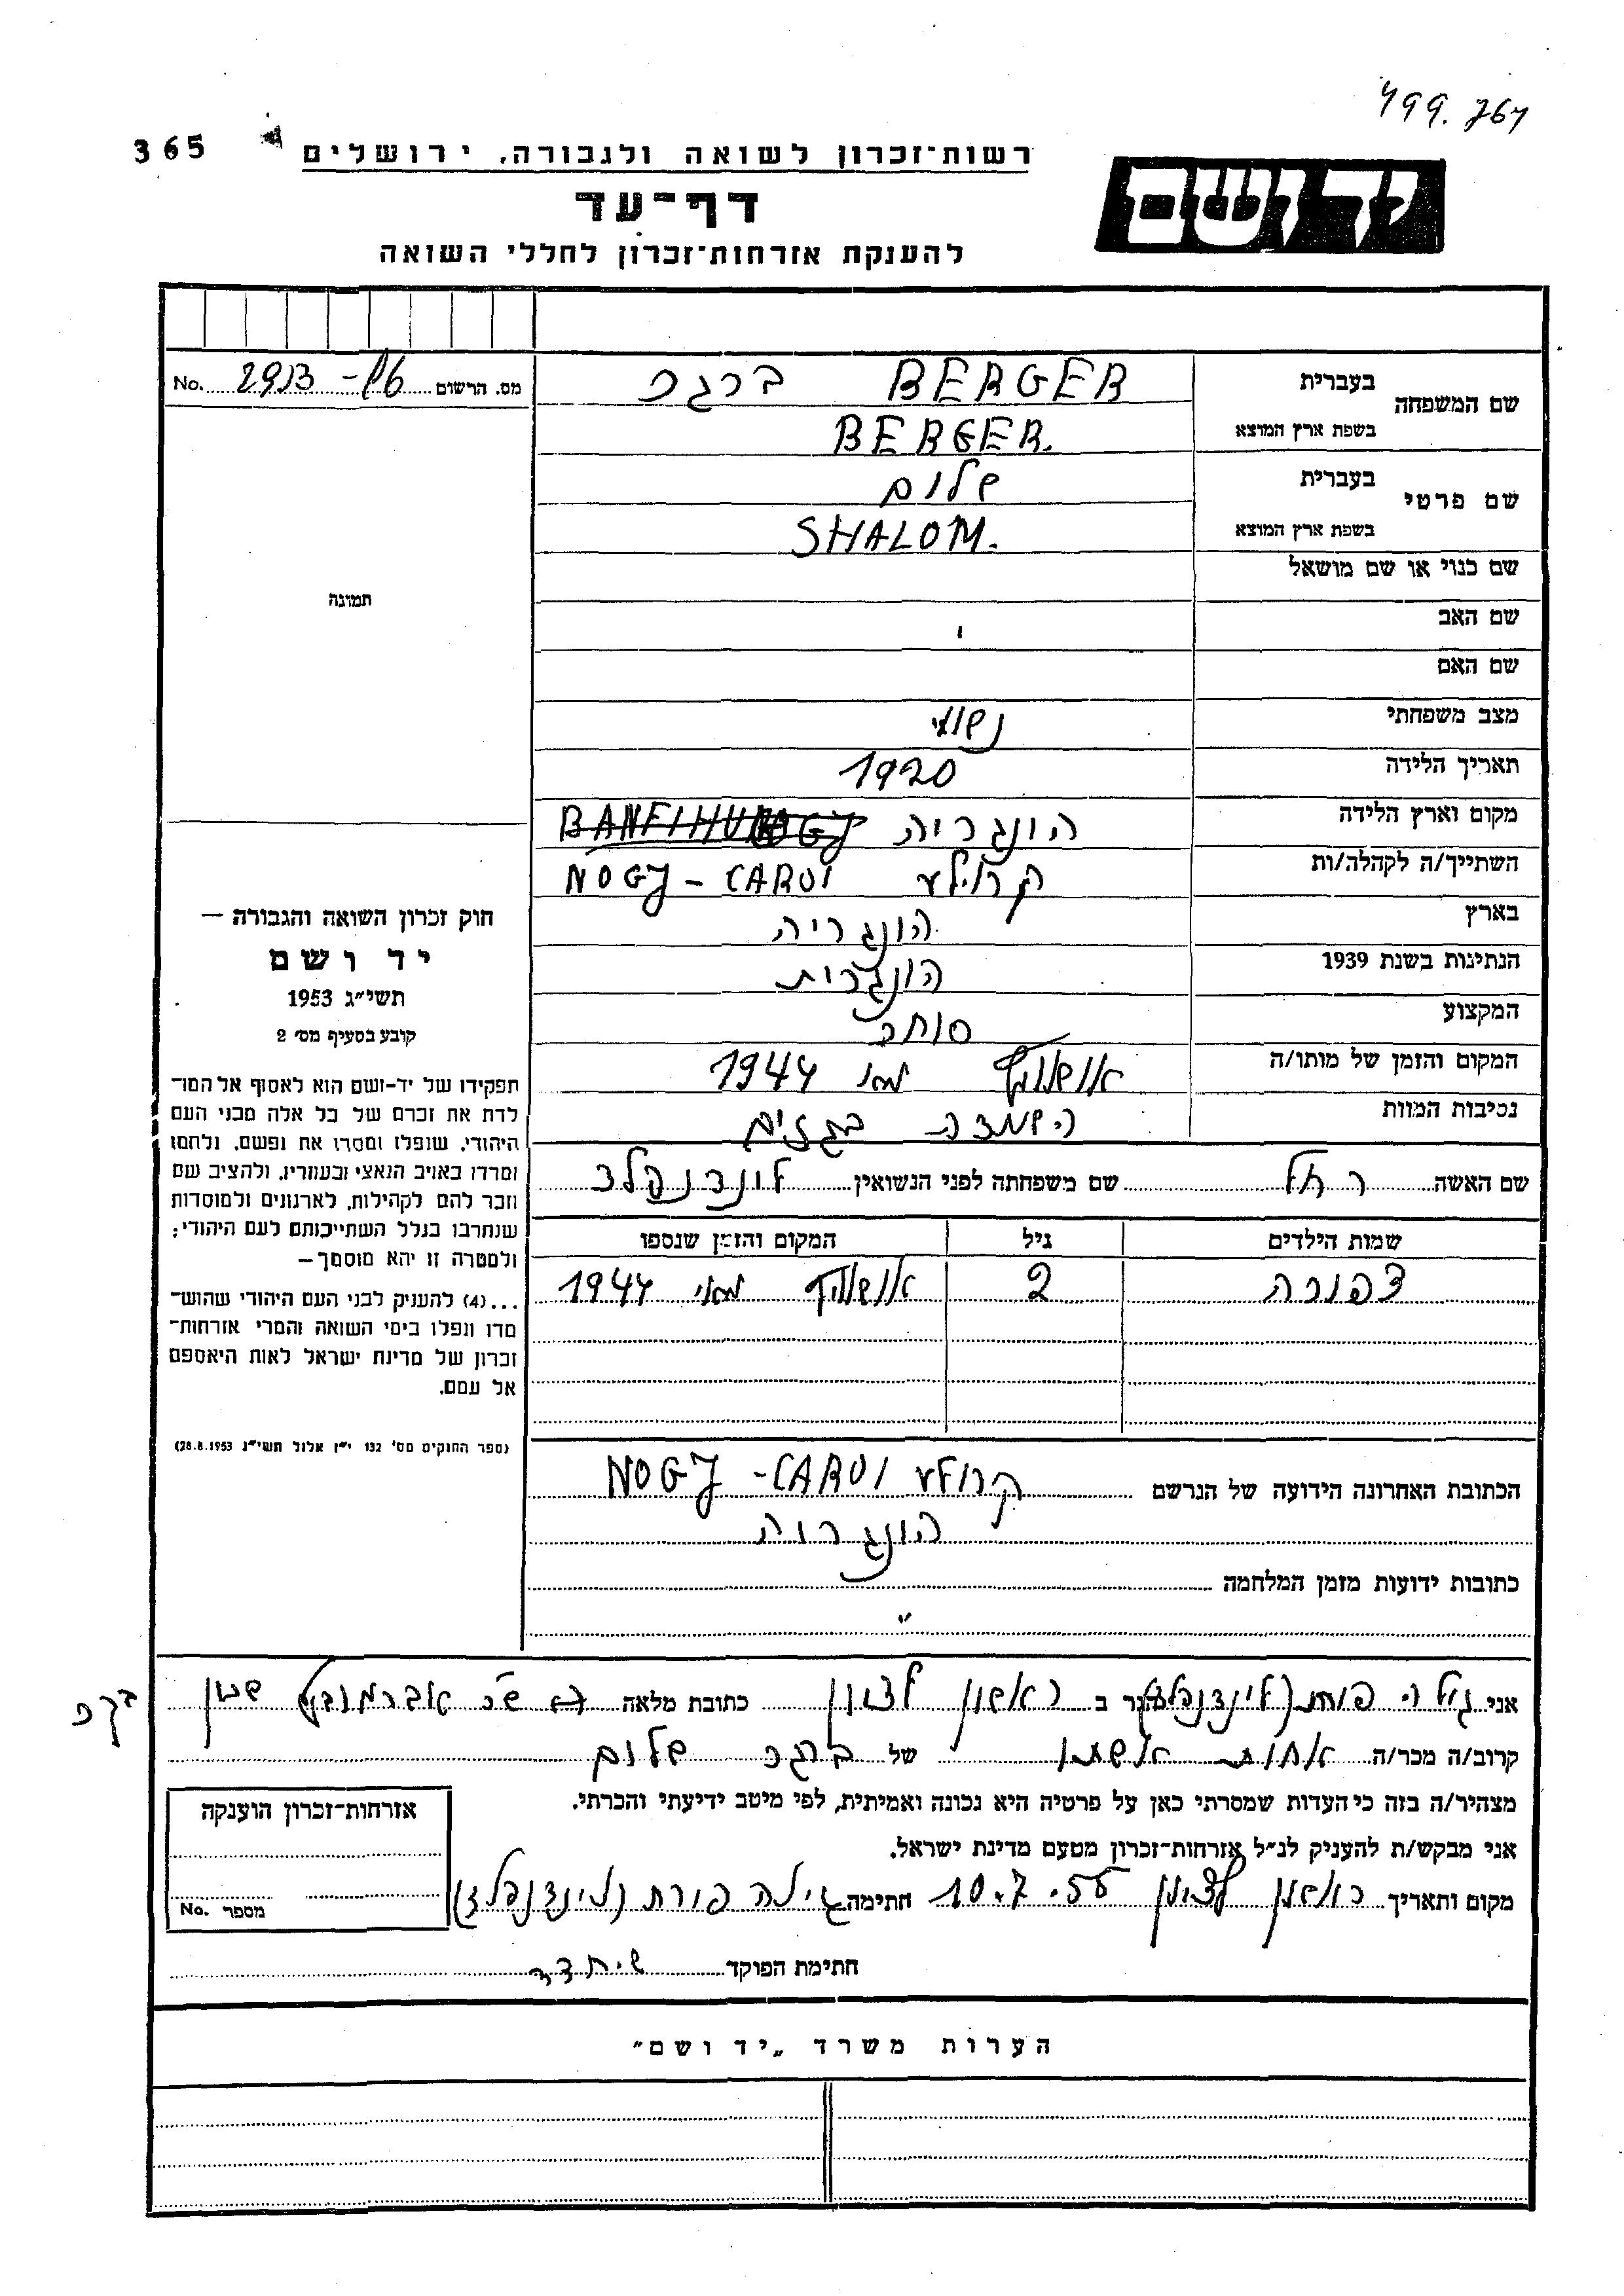 499.767
365
רשות־זכרון לשואה ולגבורה, ירושלים
יד ושם
דף־עד
להענקת אזרחות־זכרון לחללי השואה
שם המשפחה בעברית BERGER ברגר
בשפת ארץ המוצא BERGER.
שם פרטי בעברית שלום
בשפת ארץ המוצא SHALOM.
שם כנוי או שם מושאל
שם האב
שם האם
מצב משפחתי נשוי
תאריך הלידה 1920
מקום וארץ הלידה הונגריה
השתייך/ה לקהלה/ות NOGJ - CAROI
בארץ הונגריה
הנתינות בשנת 1939 הונגרית
המקצוע סוחר
המקום והזמן של מותו/ה אושוויץ מאי 1944
נסיבות המוות השמדה בגזים
שם האשה רחל שם משפחתה לפני הנשואין לינדנפלד
שמות הילדים גיל המקום והזמן שנספו
צפורה 2 אושוויץ מאי 1944
הכתובת האחרונה הידועה של הנרשם NOGJ - CAROI
הונגריה
כתובות ידועות מזמן המלחמה
מס. הרשום No.
תמונה
חוק זכרון השואה והגבורה —
יד ושם
תשי״ג 1953
קובע בסעיף מס׳ 2
תפקידו של יד-ושם הוא לאסוף אל המו־
לדת את זכרם של כל אלה מבני העם
היהודי, שנפלו ומסרו את נפשם, נלחמו
ומרדו באויב הנאצי ובעוזריו, ולהציב שם
וזכר להם לקהילות, לארגונים ולמוסדות
שנחרבו בגלל השתייכותם לעם היהודי;
ולמטרה זו יהא מוסמך—
...(4) להענק לבני העם היהודי שהוש־
מדו ונפלו בימי השואה והמרי אזרחות־
זכרון של מדינת ישראל לאות היאספם
אל עמם.
(ספר החוקים מס׳ 132 י״ז אלול תשי״ג 28.8.1953)
אני גילה פורת (לינדנפלד) הגר ב ראשון לציון כתובת מלאה אברמוביץ שכון
קרוב/ה מכר/ה אחות אשתו של ברגר שלום
מצהיר/ה בזה כי העדות שמסרתי כאן על פרטיה היא נכונה ואמיתית, לפי מיטב ידיעתי והכרתי.
אני מבקש/ת להעניק לנ״ל אזרחות־זכרון מטעם מדינת ישראל.
מקום ותאריך ראשון לציון 10.7.55 חתימה גילה פורת (לינדנפלד)
חתימת הפוקד
אזרחות־זכרון הוענקה
מספר No.
הערות משרד „יד ושם״